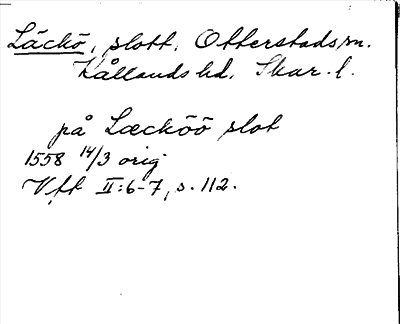 Läckö, slott, Otterstads sn.
Kållands hd, Skar. l.
på Læcköö slot
1558 14/3 orig
Vft II:6-7, s. 112.